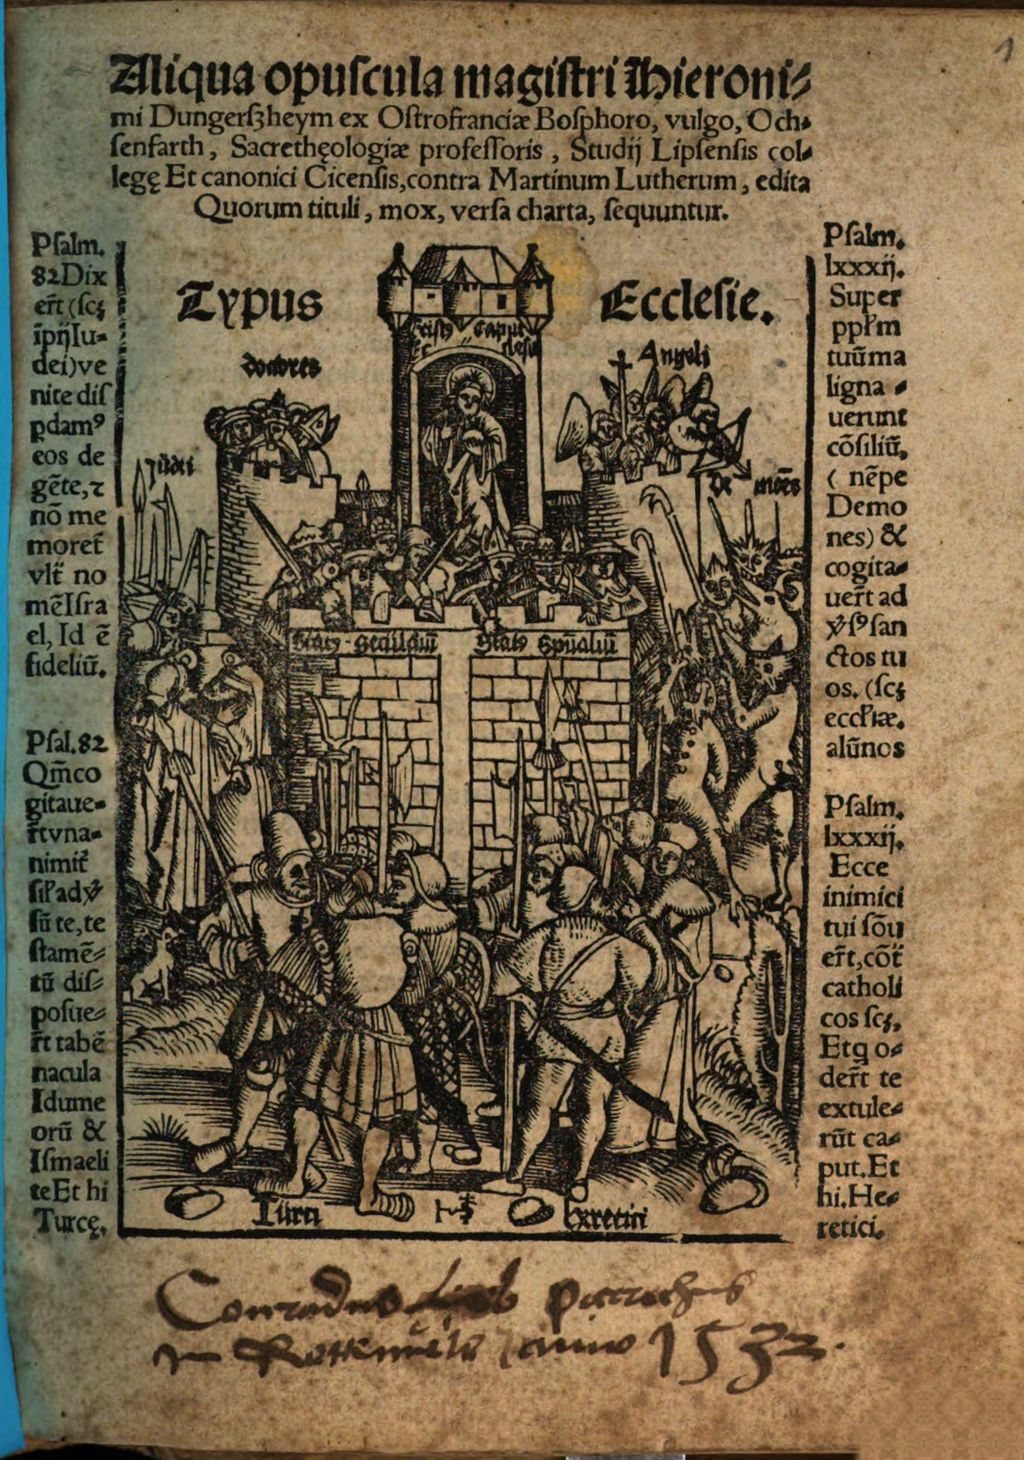 1
Aliqua opuſcula magiſtri Hieroni⸗
mi Dungerſzheym ex Oſtrofranciæ Boſphoro, vulgo, Och⸗
ſenfarth, Sacrethęologiæ profeſſoris, Studij Lipſenſis col⸗
legę Et canonici Cicenſis,contra Martinum Lutherum, edita
Quorum tituli, mox, verſa charta, ſequuntur.
Pſalm.
82Dix
er̄t (ſcꝫ
īpijIu⸗
dei)ve
nite diſ
ꝑdamꝰ
eos de
gēte,⁊
nō me
moret̄
vlt̄ no
mēIſra
el, Id ē
fideliū.
Pſal.82
Qm̄co
gitaue⸗
r̄tvna⸗
nimit̄
ſūte,te
ſtamē⸗
tū diſ⸗
poſue⸗
r̄t tabē
nacula
Idume
orū &
Iſmaeli
teEt hi
Turcę.
Typus Eccleſie.
doctores
Angeli
Judei
Demōes
Turci
Pſalm.
lxxxij.
Super
ppl̄m
tuūma
ligna⸗
uerunt
cōſiliū.
( nēpe
Demo
nes) &
cogita⸗
uer̄t ad
ſan
ctos tu
os. (ſcꝫ
eccl̄iæ.
alūnos
Pſalm.
lxxxij.
Ecce
inimici
tui ſōu
er̄t,cōt̄
catholi
cos ſcꝫ.
Etq o⸗
der̄t te
extule⸗
rūt ca⸗
put.Et
hi.He⸗
retici.
Conradus
anno 1532.